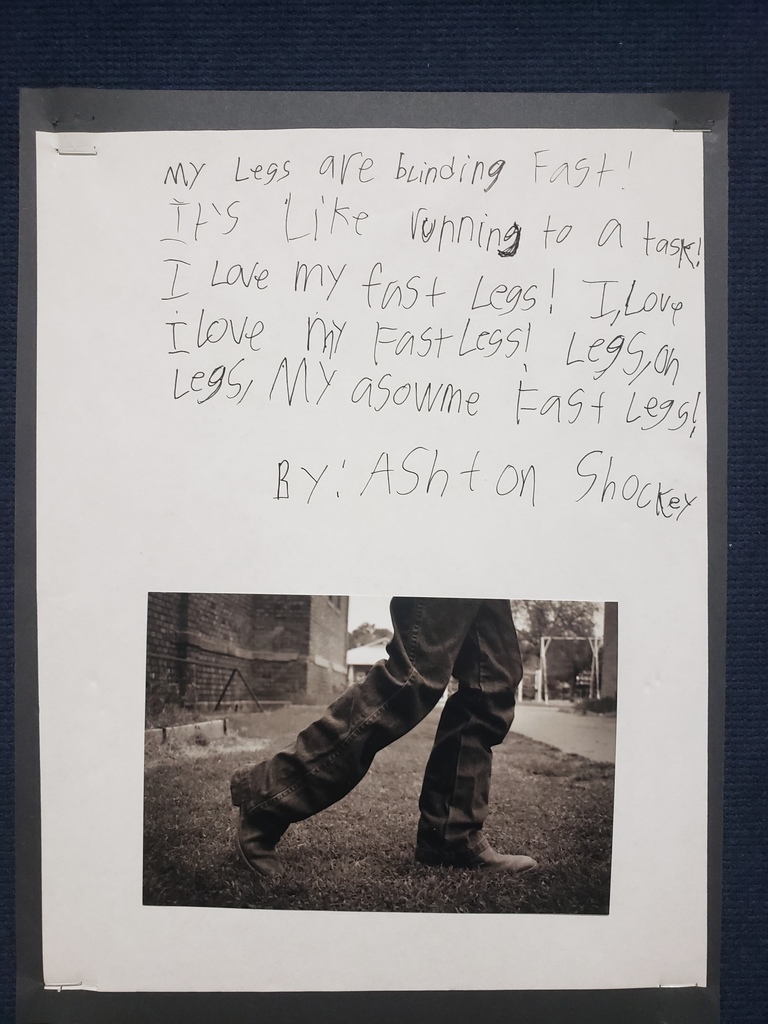 My Legs are blinding Fast!
It's Like running to a task!
I Love my fast Legs! I, Love
I love my Fast Legs! Legs, on
Legs, My asowme Fast Legs!
By: Ashton Shockey